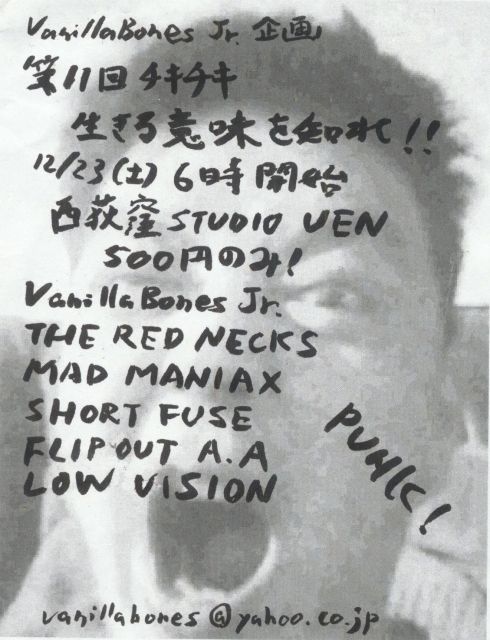 VanillaBones Jr. 企画
第11回 チキチキ
生きる意味を知れ!!
12/23(土) 6時開始
西荻窪 STUDIO UEN
500円のみ!
VanillaBones Jr.
THE RED NECKS
MAD MANIAX
SHORT FUSE
FLIPOUT A.A
LOW VISION
PUNK!
vanillabones@yahoo.co.jp